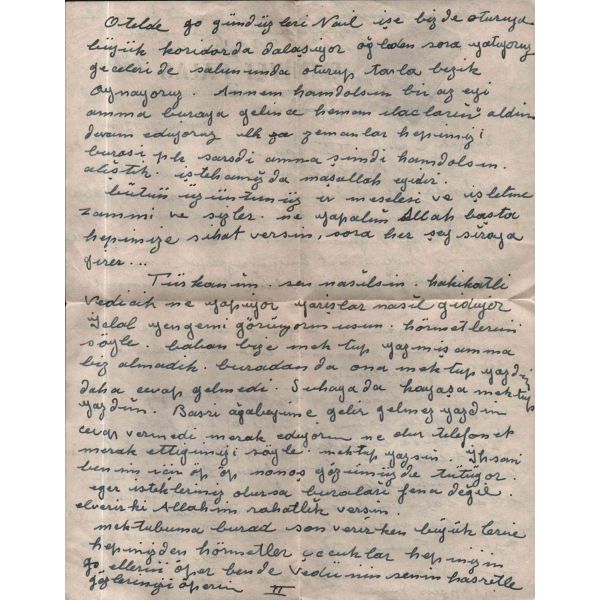 Otelde go gündüzleri Nail işe bizde oturuya
büyük koridorda dalaşıyor öğleden sora yatıyoruz
geceleri de salonunda oturup tavla bezik
oynayoruz. Annem hamdolsun bir az eyi
amma buraya gelince hemen ilaclarını aldım
devam ediyoruz ilk zemanlar hepimizi
burasi pek sarsdi amma şimdi hamdolsın
aliştik. iştehamızda maşallah eyidir.
bütün üzüntümüz ev meselesi ve işletme
zammi ve seyler. ne yapalım Allah başta
hepimize sihat versin, sora her şey sıraya
girer...
Türkanım. sen nasılsin. hakikatli
Vediah ne yapıyor yarişlar nasıl gidiyor
Jelal yengemi görüyormusun. hörmetlerimi
söyle. baban bize mektup yazmış amma
biz almadik. buradan da ona mektup yazdız
daha cevap gelmedi. Suhaya da kayaşa mektup
yazdım. Basri ağabeyime gelir gelmez yazdım
cevap vermedi merak ediyorum ne olur telefon et
merak ettiğimizi söyle. mektup yazsın. İhsani
benim icin öp öp nonoş gözümüzde tütüyor.
eger istekleriniz olursa buraları fena değil.
elverirki Allahim rahatlik versin.
mektubuma burad son verirken büyüklerine
hepinizden hörmetler çocuklar hepinizin
go ellerini öper bende Vediinin senin hasretle
gözlerinizi öperim II